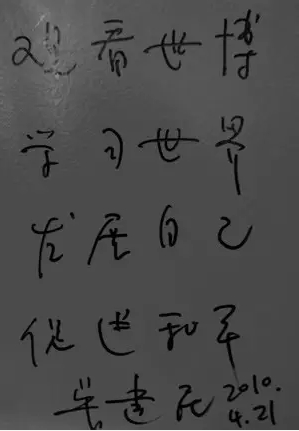 观看世博
学习世界
发展自己
促进和平
2010.
4.21